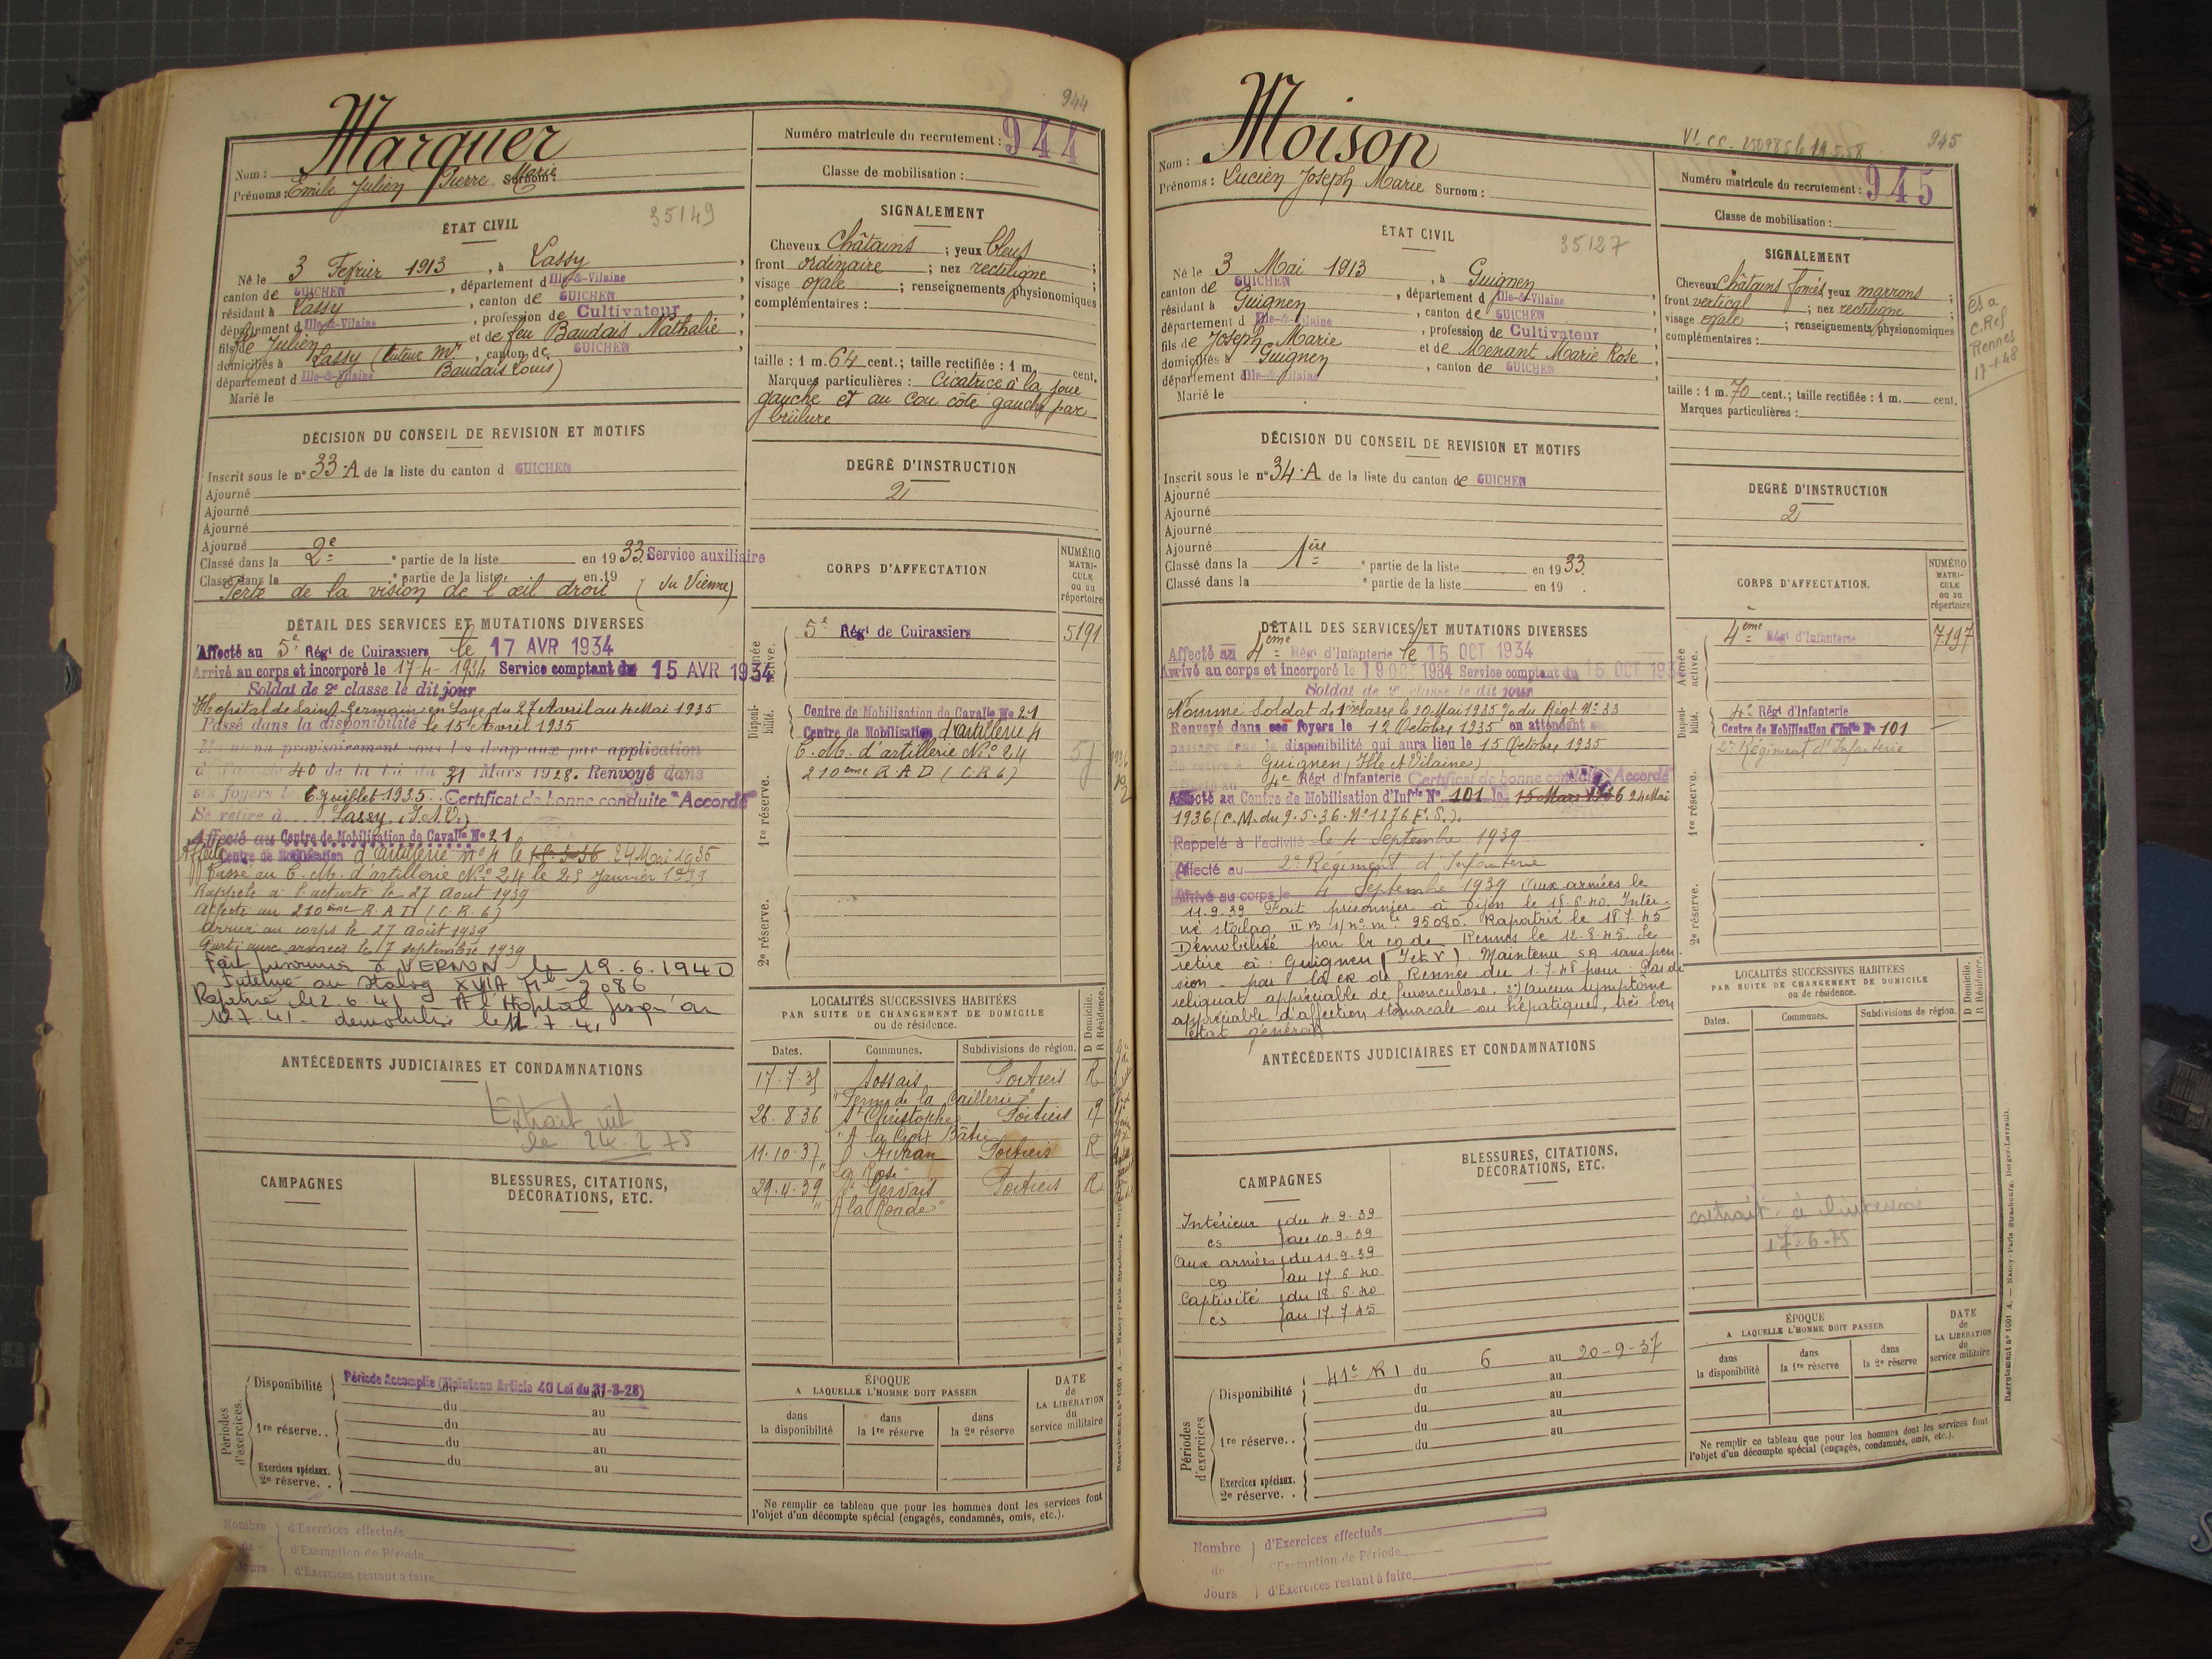 944
Marquer
Nom :
Prénoms : Emile Julien Pierre Marie Surnom :
Numéro matricule du recrutement : 944
Classe de mobilisation :
ÉTAT CIVIL
35149
Né le 3 Fevrier 1913, à Lassy,
canton de GUICHEN, département d Ille-&-Vilaine
résidant à Lassy, canton de GUICHEN,
département d Ille-&-Vilaine, profession de Cultivateur
fils de Julien et de feu Baudais Nathalie,
domiciliés à Lassy (tuteur Mr, canton de GUICHEN,
département d Ille-&-Vilaine Baudais Louis)
Marié le
SIGNALEMENT
Cheveux Châtains ; yeux bleus ;
front ordinaire ; nez rectiligne ;
visage ovale ; renseignements physionomiques
complémentaires :
taille : 1 m. 64 cent.; taille rectifiée : 1 m. cent.
Marques particulières : Cicatrice à la joue
gauche et au cou côté gauche par
brûlure
DÉCISION DU CONSEIL DE REVISION ET MOTIFS
Inscrit sous le n° 33-A de la liste du canton d GUICHEN
Ajourné
Ajourné
Ajourné
Ajourné
Classé dans la 2e ° partie de la liste en 1933. Service auxiliaire
Classé dans la ° partie de la liste en 19
Perte de la vision de l'œil droit
DEGRÉ D'INSTRUCTION
2
CORPS D'AFFECTATION
NUMÉRO MATRICULE ou au répertoire
Armée active.
5e Régt de Cuirassiers 5191
Disponibilité.
Centre de Mobilisation de Cavalle No 21
Centre de Mobilisation d'artillerie 4
C. M. d'artillerie N° 24
210ème R A D (C R 6)
1re réserve.
2e réserve.
DÉTAIL DES SERVICES ET MUTATIONS DIVERSES
Affecté au 5e Régt de Cuirassiers le 17 AVR 1934
Arrivé au corps et incorporé le 17-4-1934 Service comptant du 15 AVR 1934
Soldat de 2e classe le dit jour
Hopital de Saint-Germain en Laye du 27 Avril au 4 Mai 1935
Passé dans la disponibilité le 15 Avril 1935
Maintenu provisoirement sous les drapeaux par application
de l'article 40 de la loi du 31 Mars 1928. Renvoyé dans
ses foyers le 6 Juillet 1935. Certificat de bonne conduite "Accordé"
Se retire à Lassy. (I. & V.)
Affecté au Centre de Mobilisation de Cavalle No 21
Affecté Centre de Mobilisation d'artillerie n° 4 le 24 Mai 1936
Passé au C. M. d'artillerie N° 24 le 25 Janvier 1939
Rappelé à l'activité le 27 Aout 1939
Affecté au 210ème R. A. D (C. R. 6)
Arrivé au corps le 27 Août 1939
Parti aux armées le 17 septembre 1939
Fait prisonnier à VERNON le 19.6.1940
Interné au stalag XVII A Mle 2086
Rapatrié le 2.6.41 - A l'Hopital jusqu'au
12.7.41 - démobilisé le 12.7.41
ANTÉCÉDENTS JUDICIAIRES ET CONDAMNATIONS
Extrait
le 24-2-75
LOCALITÉS SUCCESSIVES HABITÉES
PAR SUITE DE CHANGEMENT DE DOMICILE
ou de résidence.
D Domicile.
R Résidence.
Dates. Communes. Subdivisions de région.
17-7-35 Sossais Poitiers R
"Ferme de la Caillerie"
26-8-36 St Christophe Poitiers R
"A la Croix Bâtie"
11-10-37 Antran Poitiers R
29-4-39 St Gervais Poitiers R
"A la Ronde"
CAMPAGNES
BLESSURES, CITATIONS,
DÉCORATIONS, ETC.
Périodes d'exercices.
Disponibilité Période Accomplie (Maintenu Article 40 Loi du 31-3-28)
du au
1re réserve. . du au
du au
du au
Exercices spéciaux.
2e réserve. .
ÉPOQUE
A LAQUELLE L'HOMME DOIT PASSER
dans la disponibilité
dans la 1re réserve
dans la 2e réserve
DATE de LA LIBÉRATION du service militaire
Ne remplir ce tableau que pour les hommes dont les services font
l'objet d'un décompte spécial (engagés, condamnés, omis, etc.).
Nombre de Jours
d'Exercices effectués
d'Exemption de Période
d'Exercices restant à faire
945
Moison
Nom :
Prénoms : Lucien Joseph Marie Surnom :
Numéro matricule du recrutement : 945
Classe de mobilisation :
ÉTAT CIVIL
35127
Né le 3 Mai 1913, à Guignen
canton de GUICHEN, département d Ille-&-Vilaine
résidant à Guignen, canton de GUICHEN
département d Ille-&-Vilaine, profession de Cultivateur
fils de Joseph Marie et de Menant Marie Rose
domiciliés à Guignen, canton de GUICHEN,
département d Ille-&-Vilaine
Marié le
SIGNALEMENT
Cheveux Châtains foncés yeux marrons ;
front vertical ; nez rectiligne ;
visage ovale ; renseignements physionomiques
complémentaires :
taille : 1 m. 70 cent.; taille rectifiée : 1 m. cent.
Marques particulières :
C.Ref
Rennes
17-1-48
DÉCISION DU CONSEIL DE REVISION ET MOTIFS
Inscrit sous le n° 34-A de la liste du canton de GUICHEN
Ajourné
Ajourné
Ajourné
Ajourné
Classé dans la 1ère ° partie de la liste en 1933.
Classé dans la ° partie de la liste en 19 .
DEGRÉ D'INSTRUCTION
2
CORPS D'AFFECTATION.
NUMÉRO MATRICULE ou au répertoire
Armée active.
4ème Régt d'Infanterie 7197
Disponibilité.
4e Régt d'Infanterie
Centre de Mobilisation d'Infie No 101
2e Régiment d'Infanterie
1re réserve.
2e réserve.
DÉTAIL DES SERVICES ET MUTATIONS DIVERSES
Affecté au 4ème Régt d'Infanterie le 15 OCT 1934
Arrivé au corps et incorporé le 19 OCT 1934 Service comptant du 15 OCT 1934
Soldat de 2e classe le dit jour
Nommé Soldat de 1ère classe le 20 Mai 1935 % du Régt N° 33
Renvoyé dans ses foyers le 12 Octobre 1935 en attendant son
passage dans la disponibilité qui aura lieu le 15 Octobre 1935
Se retire à Guignen (Ille et Vilaine)
4e Régt d'Infanterie Certificat de bonne conduite "Accordé"
Affecté au Centre de Mobilisation d'Infie No 101 le 15 Mars 1936 24 Mai
1936 (C.M. du 9.5.36. N° 1276 E.S.).
Rappelé à l'activité le 4 Septembre 1939
Affecté au 2e Régiment d'Infanterie
Arrivé au corps le 4 Septembre 1939 Aux armées le
11.9.39 Fait prisonnier à Dijon le 18.6.40. Inter-
né stalag II B s/n° m. 95080. Rapatrié le 18.7.45
Démobilisé par le de Rennes le 12.8.45. Se
retire à : Guignen (I et V). Maintenu SA sans pen-
sion - par la CR de Rennes du 1-7-48 pour : Pas de
reliquat appréciable de furonculose. 2°) Aucun symptôme
appréciable d'affection stomacale ou hépatique, très bon
état général.
ANTÉCÉDENTS JUDICIAIRES ET CONDAMNATIONS
LOCALITÉS SUCCESSIVES HABITÉES
PAR SUITE DE CHANGEMENT DE DOMICILE
ou de résidence.
D Domicile.
R Résidence.
Dates. Communes. Subdivisions de région.
extrait à
17-6-75
CAMPAGNES
Intérieur du 4-9-39
cs au 10.9.39
Aux armées du 11.9.39
cs au 17.6.40
Captivité du 18.6.40
cs au 17.7.45
BLESSURES, CITATIONS,
DÉCORATIONS, ETC.
Périodes d'exercices
Disponibilité 41e R I du 6 au 20-9-37
du au
du au
1re réserve. . du au
du au
Exercices spéciaux.
2e réserve. .
ÉPOQUE
A LAQUELLE L'HOMME DOIT PASSER
dans la disponibilité
dans la 1re réserve
dans la 2e réserve
DATE de LA LIBÉRATION du service militaire
Ne remplir ce tableau que pour les hommes dont les services font
l'objet d'un décompte spécial (engagés, condamnés, omis, etc.).
Recrutement n° 1001 A. — Nancy-Paris-Strasbourg, Berger-Levrault.
Nombre de Jours
d'Exercices effectués
d'Exemption de Période
d'Exercices restant à faire